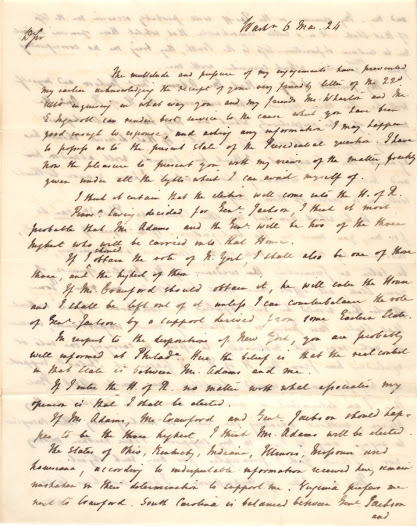 Washn 6 Mar. 24
Dr Sir
The multitude and pressure of my engagements have prevented
my earlier acknowledging the receipt of your very friendly letter of the 22d
Ulto inquiring in what way you and my friends Mr. Wharton and Mr.
E. Ingersoll can render best service to the cause which you have been
good enough to espouse, and asking any information I may happen
to possess as to the present state of the Presidential question. I have
now the pleasure to present you with my views of the matter, frankly
given under all the lights which I can avail myself of.
I think it certain that the election will come into the H. of R.
Pennsa. being decided for Genl. Jackson, I think it most
probable that Mr. Adams and the Genl. will be two of the three
highest who will be carried into that House.
If I obtain the vote of N. York I shall also be one of those
three, and the highest of them
If Mr. Crawford should obtain it, he will enter the House
and I shall be left out of it unless I can counterbalance the vote
of Genl. Jackson by a support derived from some Eastern State.
In respect to the dispositions of New York, you are probably
well informed at Philada. Here the belief is that the real contest
in that State is between Mr. Adams and me.
If I enter the H. of R. no matter with what associates my
opinion is that I shall be elected.
If Mr. Adams, Mr. Crawford and Genl. Jackson should hap-
pen to be the three highest I think Mr. Adams will be elected
The States of Ohio, Kentucky, Indiana, Illinois, Missouri and
Louisiana, according to indisputable information received here, remain
unshaken in their determination to support me. Virginia prefers me
next to Crawford. South Carolina is balanced between Genl. Jackson
and